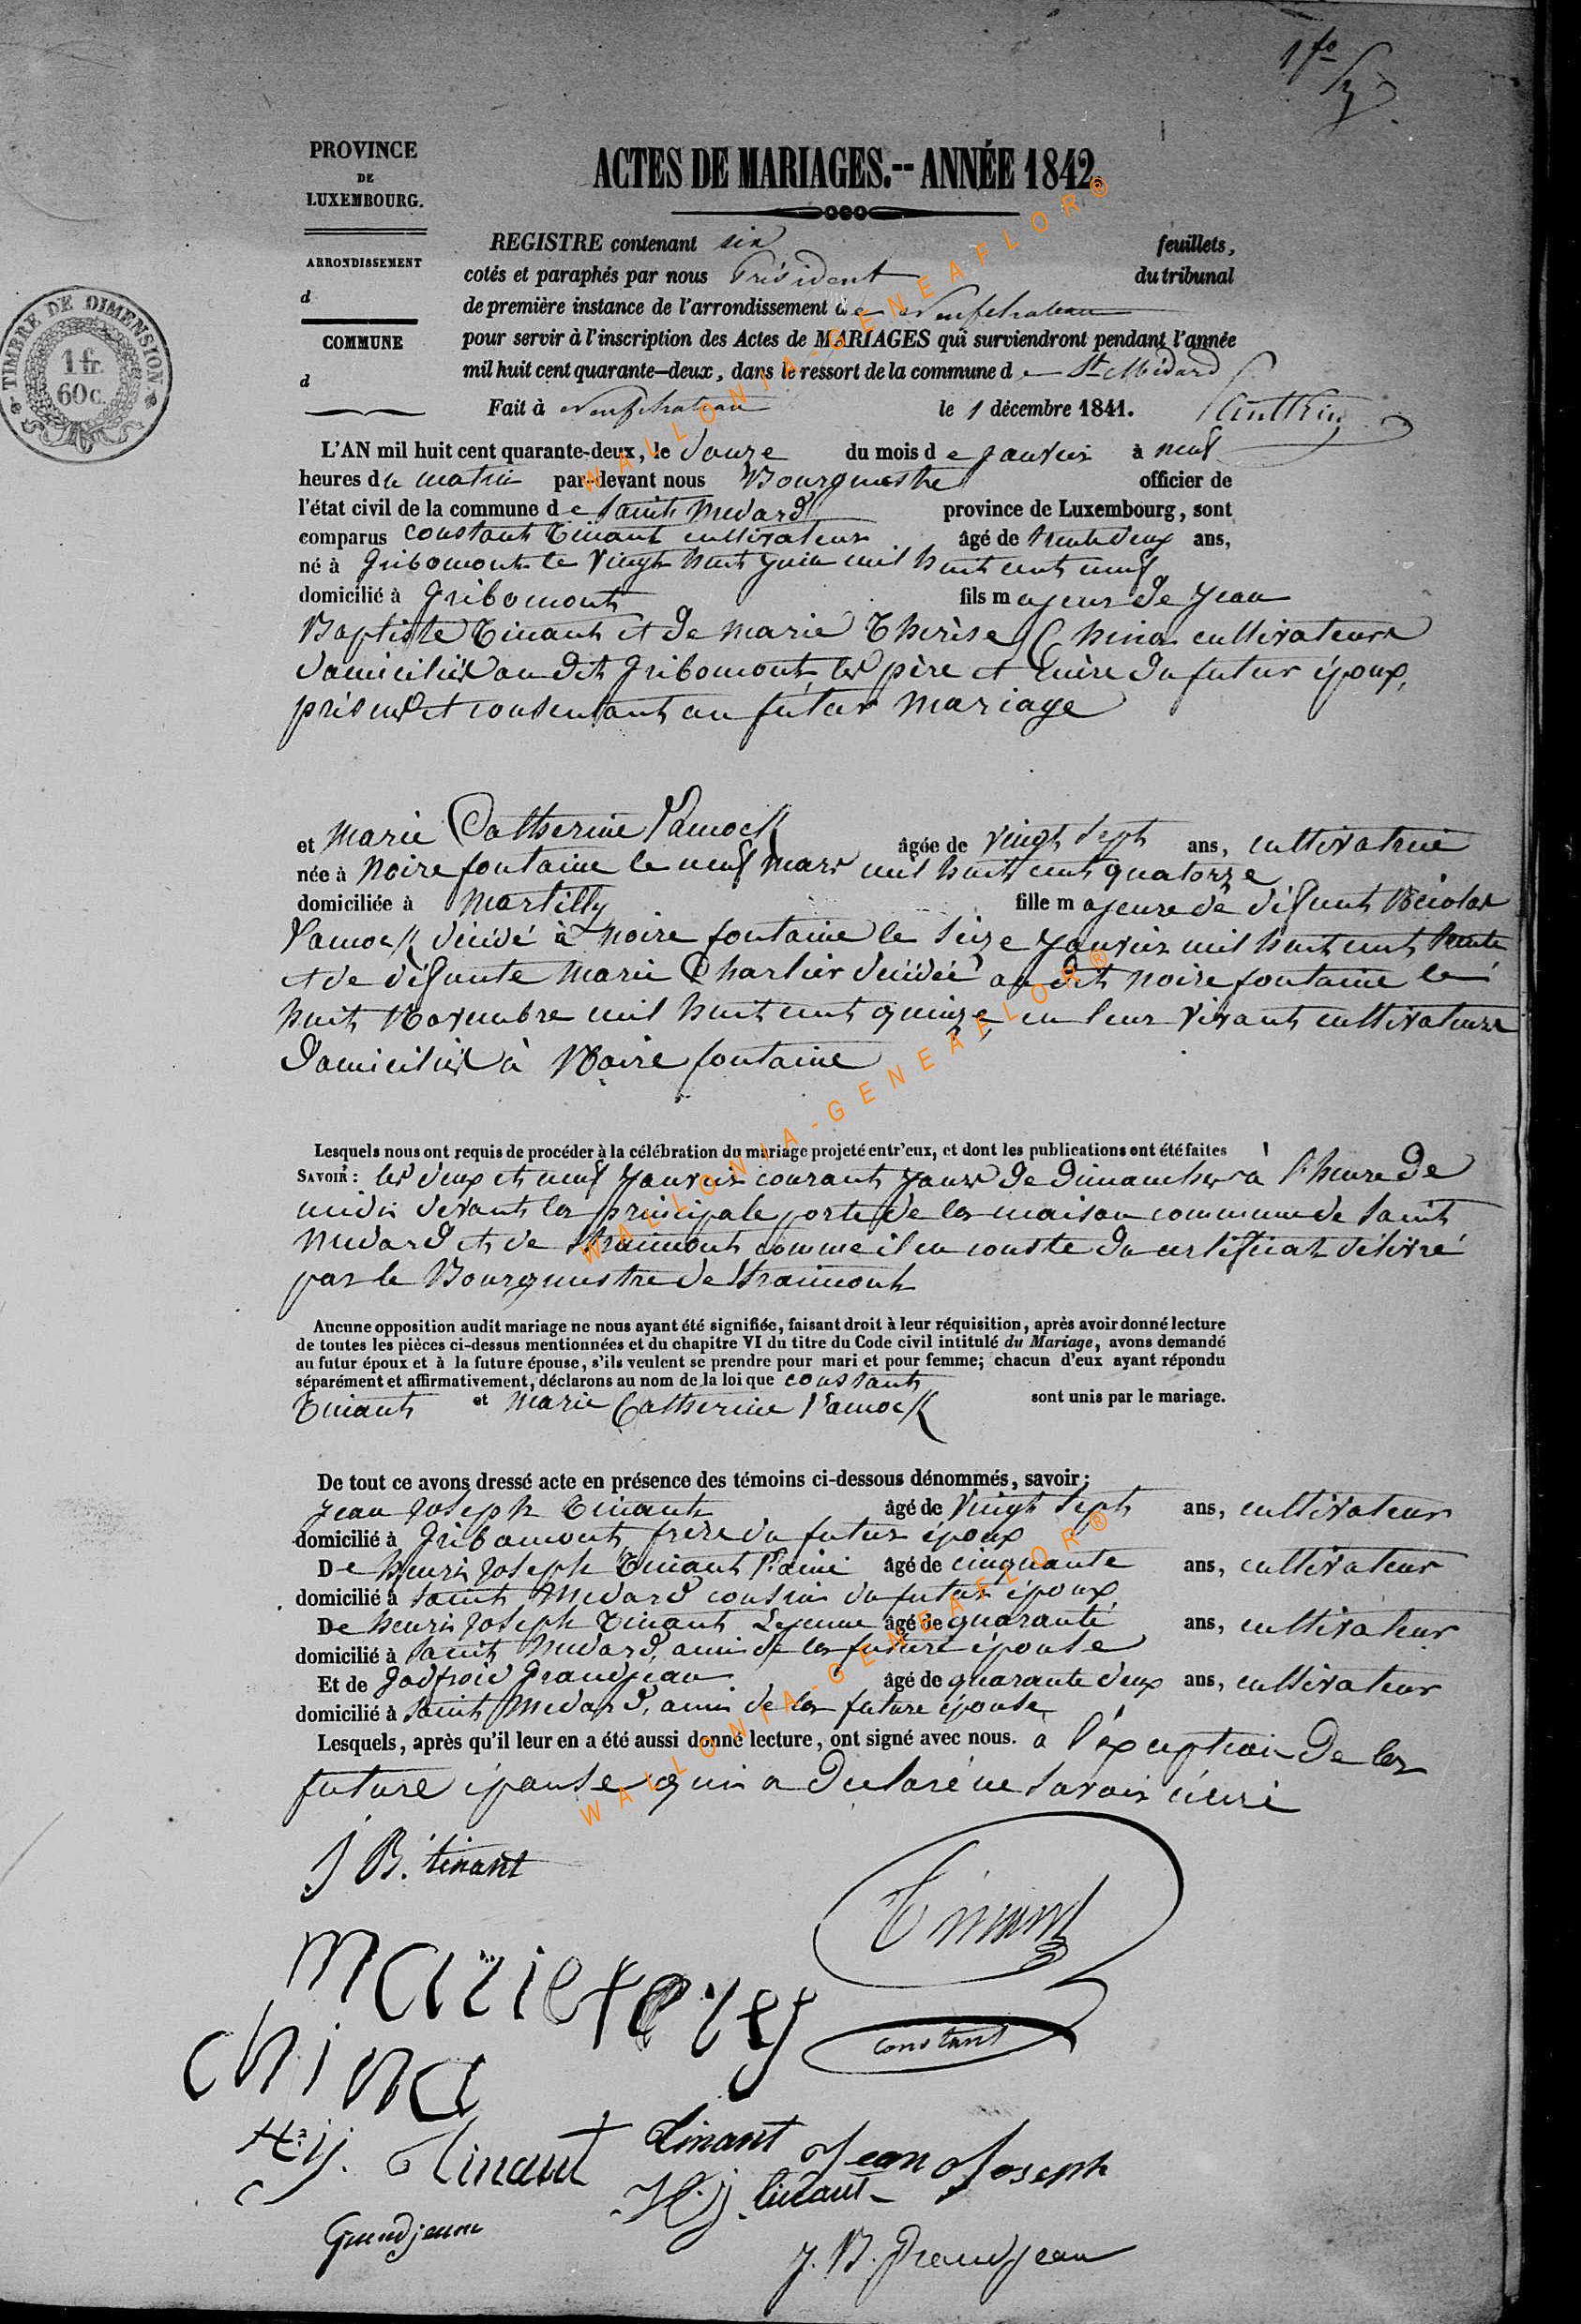 1 fo
PROVINCE
DE
LUXEMBOURG.
ARRONDISSEMENT
d
COMMUNE
d
TIMBRE DE DIMENSION
1 fr.
60 c.
ACTES DE MARIAGES.-- ANNÉE 1842.
REGISTRE contenant six feuillets,
cotés et paraphés par nous Président du tribunal
de première instance de l'arrondissement de Neufchateau
pour servir à l'inscription des Actes de MARIAGES qui surviendront pendant l'année
mil huit cent quarante-deux, dans le ressort de la commune de St Médard
Fait à Neufchateau le 1 décembre 1841.
L'AN mil huit cent quarante-deux, le douze du mois de janvier à neuf
heures du matin par-devant nous Bourgmestre officier de
l'état civil de la commune de saint medard province de Luxembourg, sont
comparus constant Tinant cultivateur âgé de trente deux ans,
né à gribomont le vingt huit juin mil huit cent neuf
domicilié à gribomont fils majeur de jean
Baptiste Tinant et de marie Thérèse China cultivateurs
domiciliés au dit gribomont, les père et mère du futur époux,
présens et consentant au futur mariage
et marie Catherine Lamock âgée de vingt sept ans, cultivatrice
née à noire fontaine le neuf mars mil huit cent quatorze
domiciliée à martilly fille majeure de défunt Nicolas
Lamock décédé à noire fontaine le seize janvier mil huit cent trente
et de défunte marie Charlier décédée au dit noire fontaine le
huit Novembre mil huit cent quinze, en leur vivant cultivateurs
domiciliés à Noire fontaine
Lesquels nous ont requis de procéder à la célébration du mariage projeté entr'eux, et dont les publications ont été faites
SAVOIR : les deux et neuf janvier courant jours de dimanches à l'heure de
midi devant la principale porte de la maison commune de saint
medard et de straimont comme il en conste du certificat délivré
par le Bourgmestre de straimont
Aucune opposition audit mariage ne nous ayant été signifiée, faisant droit à leur réquisition, après avoir donné lecture
de toutes les pièces ci-dessus mentionnées et du chapitre VI du titre du Code civil intitulé du Mariage, avons demandé
au futur époux et à la future épouse, s'ils veulent se prendre pour mari et pour femme; chacun d'eux ayant répondu
séparément et affirmativement, déclarons au nom de la loi que constant
Tinant et marie Catherine Lamock sont unis par le mariage.
De tout ce avons dressé acte en présence des témoins ci-dessous dénommés, savoir;
jean joseph Tinant âgé de vingt sept ans, cultivateur
domicilié à gribomont, frère du futur époux
De henri joseph Tinant l'ainé âgé de cinquante ans, cultivateur
domicilié à saint medard cousin du futur époux
De henri joseph Tinant Lejeune âgé de quarante ans, cultivateur
domicilié à saint medard, ami de la future épouse
Et de godfroid grandjean âgé de quarante deux ans, cultivateur
domicilié à saint medard, ami de la future épouse
Lesquels, après qu'il leur en a été aussi donné lecture, ont signé avec nous. à l'exception de la
future épouse qui a déclaré ne savoir écrire
J B. tinant
Tinant
constant
marie teres
china
H. j. Tinant
tinant Jean Joseph
H. j. tinant
Grandjean
J. B. Grandjean
WALLONIA-GENEAFLOR®
WALLONIA-GENEAFLOR®
WALLONIA-GENEAFLOR®